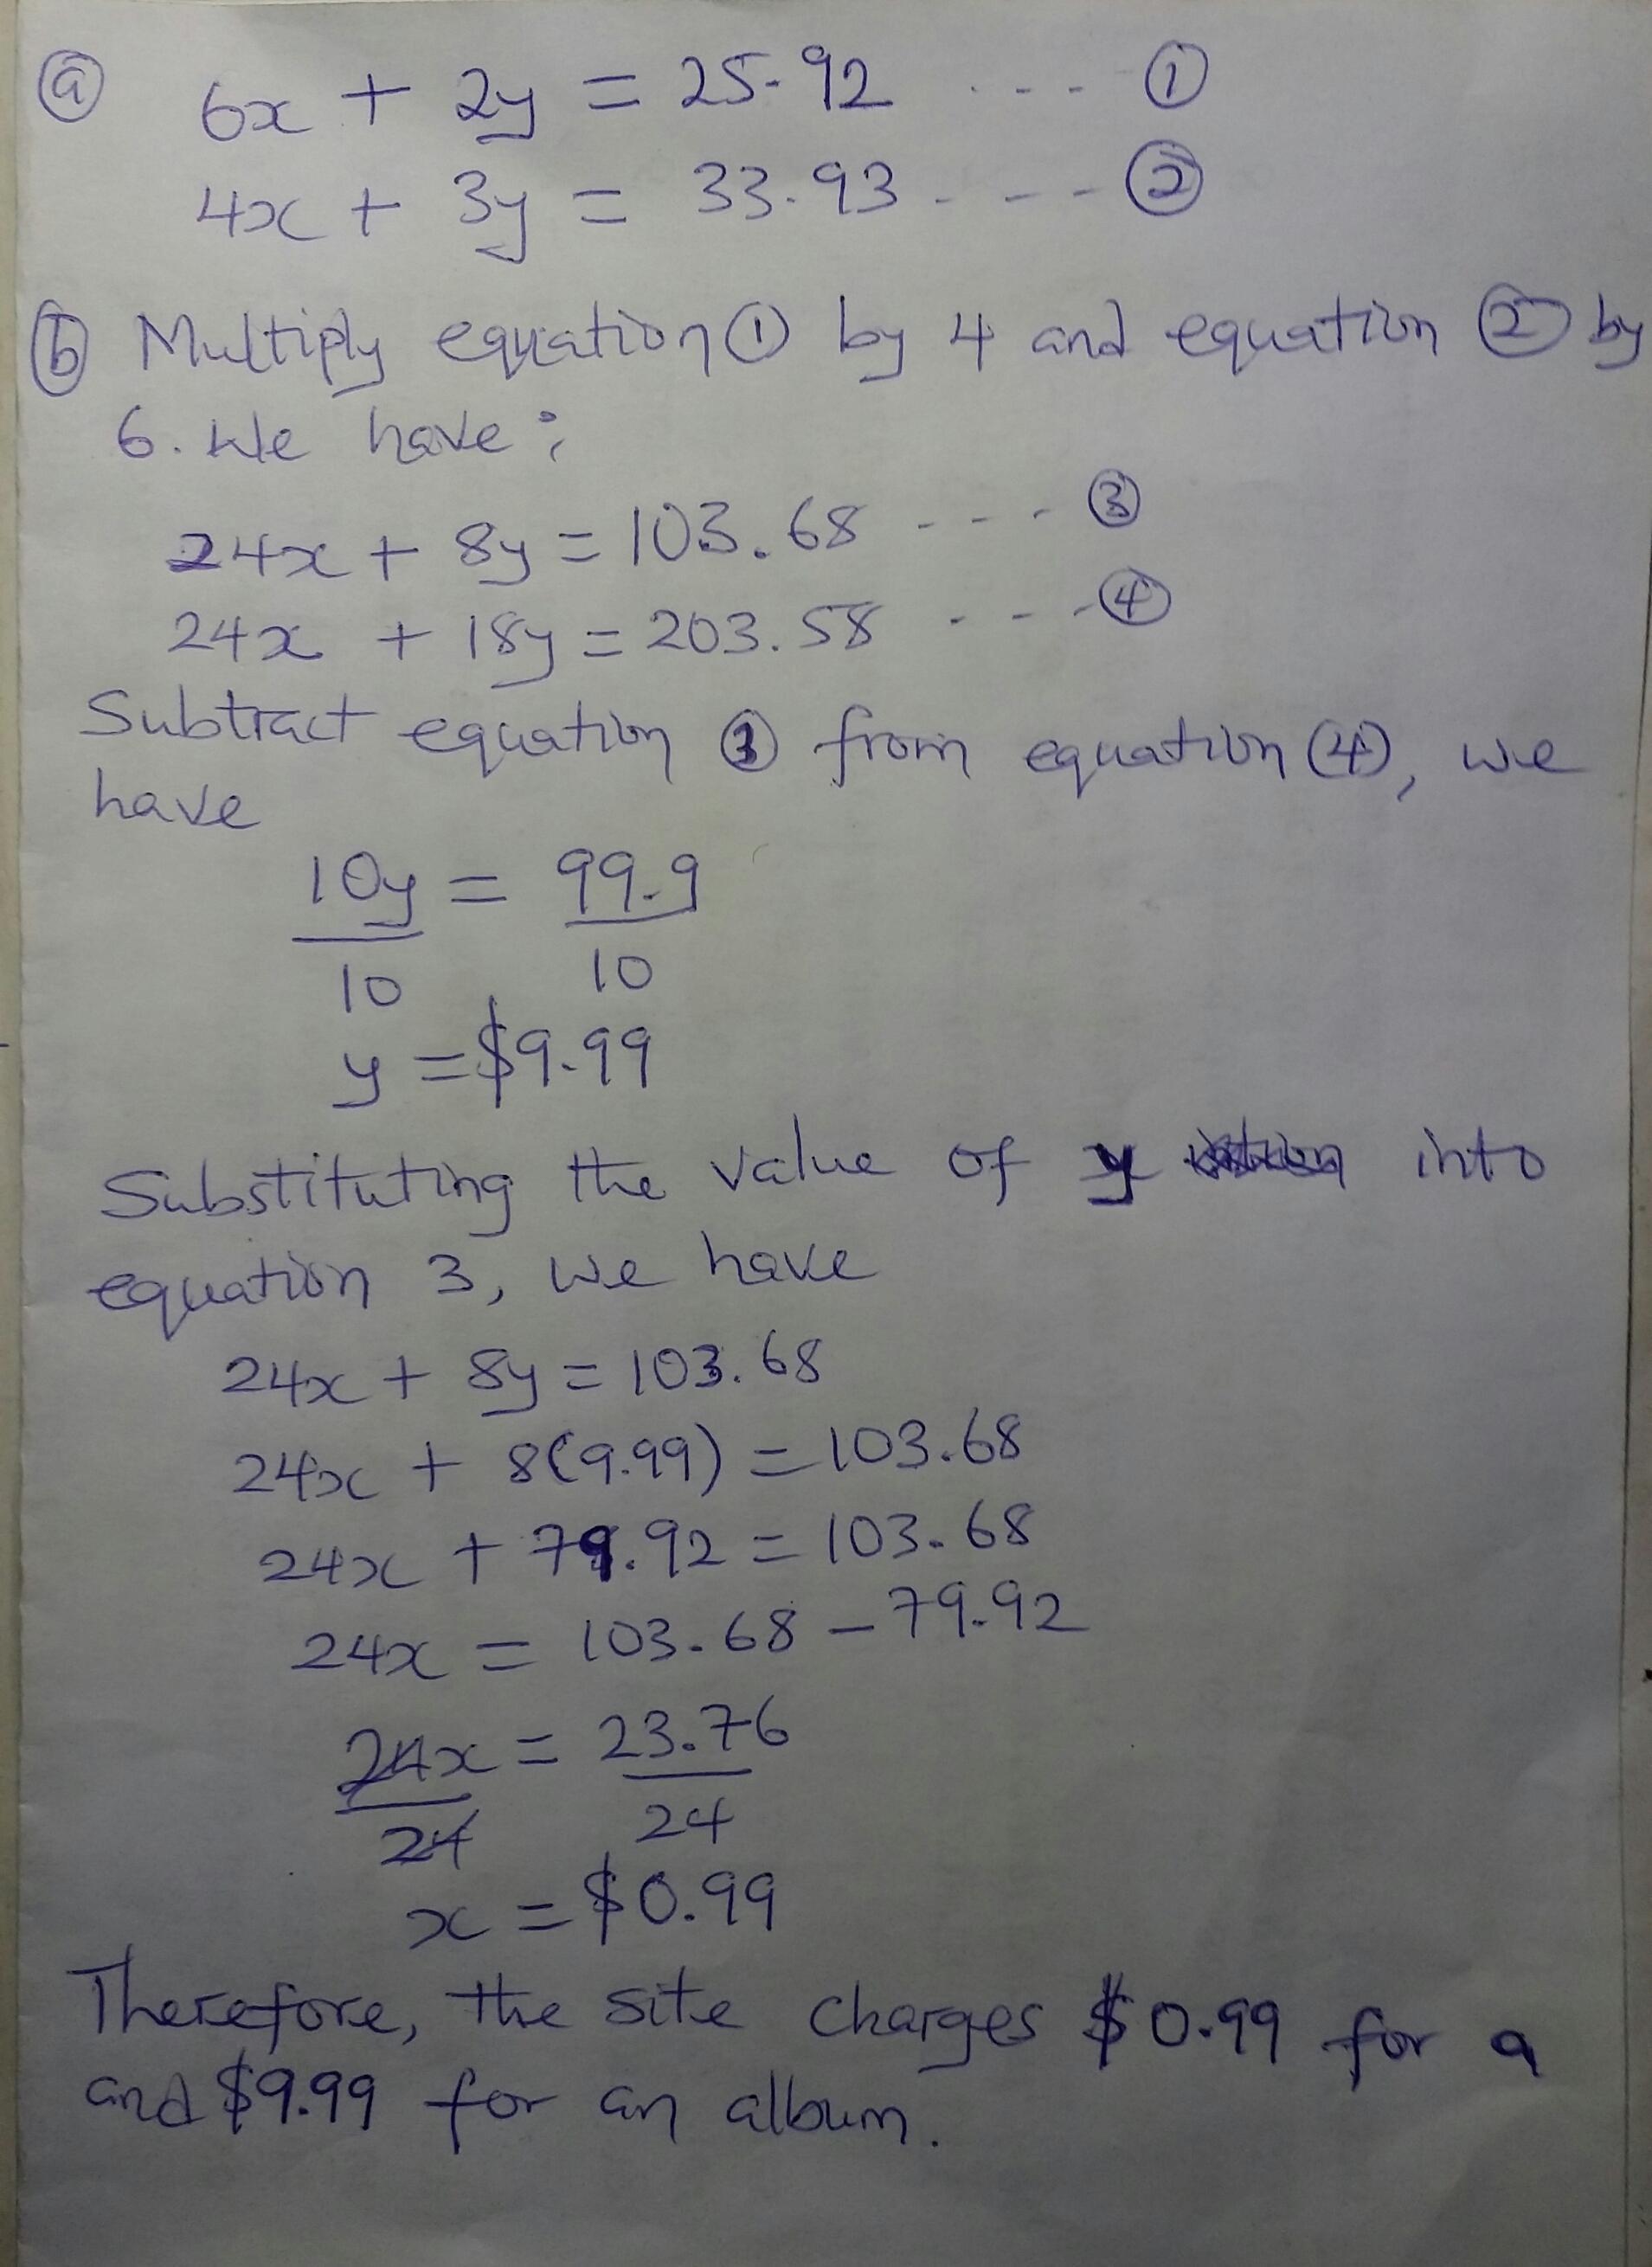 (a) 6x + 2y = 25.92 ... (1)
4x + 3y = 33.93 - - - (2)
(b) Multiply equation (1) by 4 and equation (2) by
6. We have;
24x + 8y = 103.68 - - - (3)
24x + 18y = 203.58 - - - (4)
Subtract equation (3) from equation (4), we
have
10y = 99.9
10 10
y = $9.99
Substituting the value of y into
equation 3, we have
24x + 8y = 103.68
24x + 8(9.99) = 103.68
24x + 79.92 = 103.68
24x = 103.68 - 79.92
24x = 23.76
24 24
x = $0.99
Therefore, the site charges $0.99 for a
and $9.99 for an album.